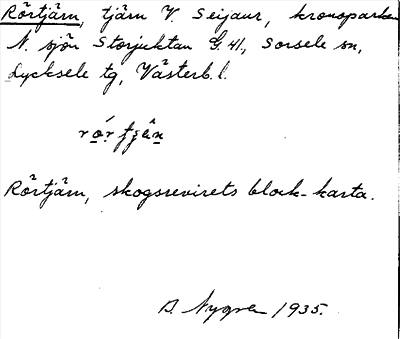 Rörtjärn, tjärn V. Seijaur, kronoparken
N. sjön Storjuktan G. 41, Sorsele sn,
Lycksele tg, Västerb. l.
Rörtjärn, skogsrevirets block-karta.
D. Nygren 1935.